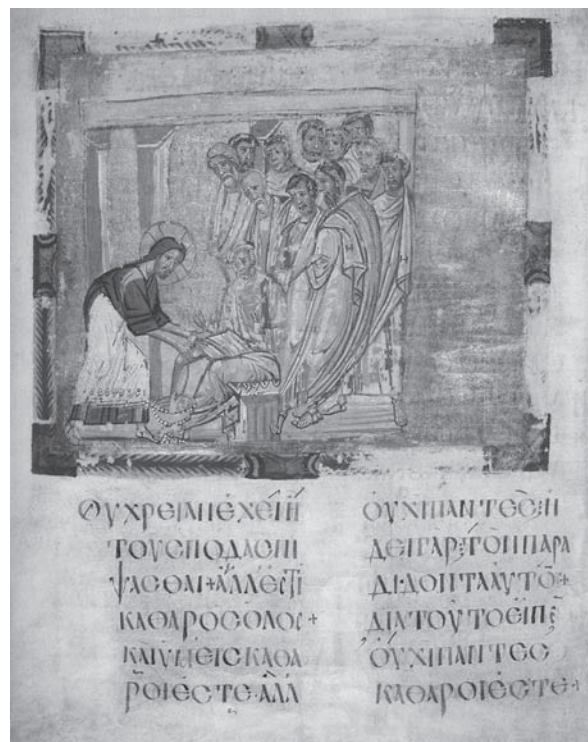 ΟΥΧΡΕΙΑΝΕΧΕΙ Η
ΤΟΥΣΠΟΔΑΣΝΙ
ΨΑΣΘΑΙ+ΑΛΛΕΣΤΙ
ΚΑΘΑΡΟΣΟΛΟΣ+
ΚΑΙΥΜΕΙΣΚΑΘΑ
ΡΟΙΕΣΤΕ·ΑΛΛ
ΟΥΧΙΠΑΝΤΕΣ:Η
ΔΕΙΓΑΡ:ΤΟΝΠΑΡΑ
ΔΙΔΟΝΤΑΑΥΤΟ+
ΔΙΑΤΟΥΤΟΕΙΠΕ
ΟΥΧΙΠΑΝΤΕΣ
ΚΑΘΑΡΟΙΕΣΤΕ+